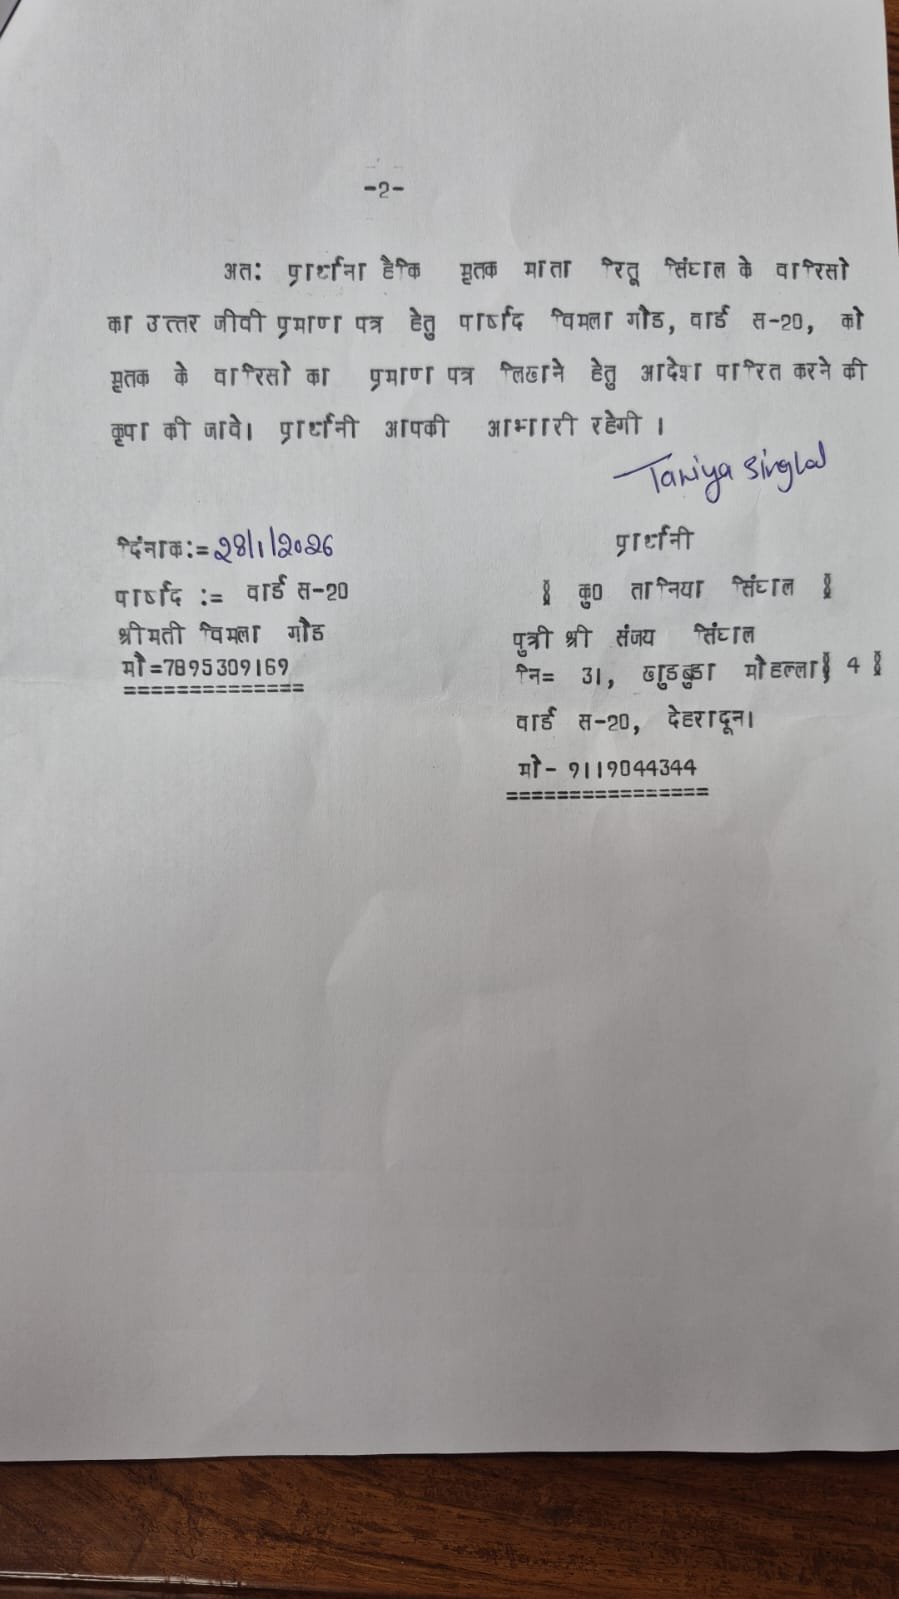 -2-
अत: प्रार्थना हैकि मृतक माता रितू सिंघल के वारिसो
का उत्तर जीवी प्रमाण पत्र हेतु पार्षद विमला गौड, वार्ड स-20, को
मृतक के वारिसो का प्रमाण पत्र लिखने हेतु आदेश पारित करने की
कृपा की जावे। प्रार्थनी आपकी आभारी रहेगी ।
Taniya Singhal
दिंनाक:=28/1/2026
प्रार्थनी
पार्षद := वार्ड स-20
( कु0 तानिया सिंघल )
श्रीमती विमला गौड
पुत्री श्री संजय सिंघल
मो=7895309169
==============
नि= 31, खुडबुडा मौहल्ला( 4 )
वार्ड स-20, देहरादून।
मो- 9119044344
================